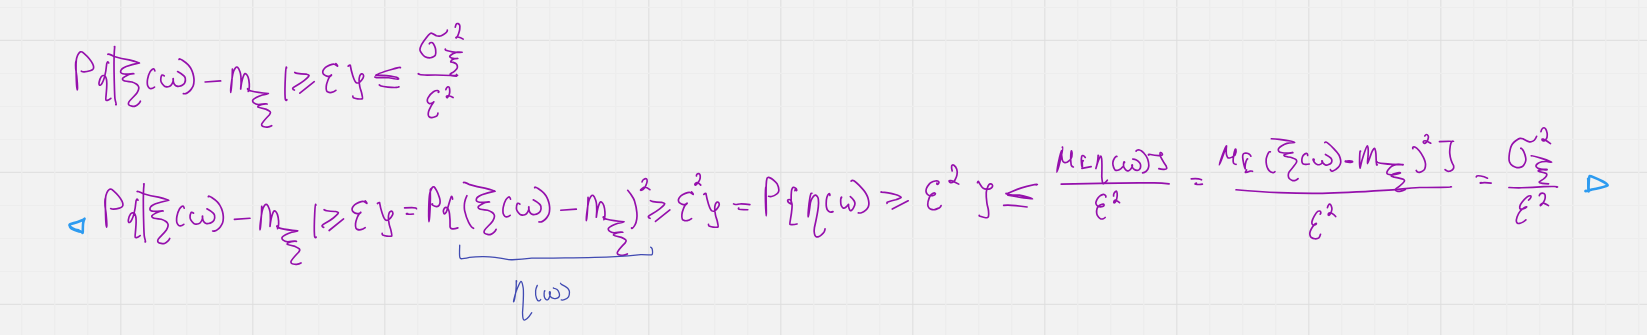 P{|ξ(ω) − m_ξ| ≥ ε} ≤ σ_ξ^2 / ε^2
◁ P{|ξ(ω) − m_ξ| ≥ ε} = P{(ξ(ω) − m_ξ)^2 ≥ ε^2} = P{η(ω) ≥ ε^2} ≤ M[η(ω)] / ε^2 = M[(ξ(ω) − m_ξ)^2] / ε^2 = σ_ξ^2 / ε^2 ▷
η(ω)